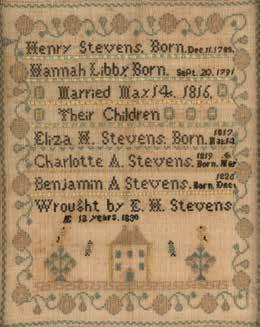 Henry Stevens. Born. Dec. 11. 1786.
Hannah Libby Born. Sept. 20. 1791
Married May 14. 1816.
Their Children
Eliza H. Stevens. Born. 1817
Charlotte A. Stevens. 1819 Born. Mar
Benjamin A Stevens. Born. Dec.
Wrought by E. H. Stevens
Æ 13 years. 1830